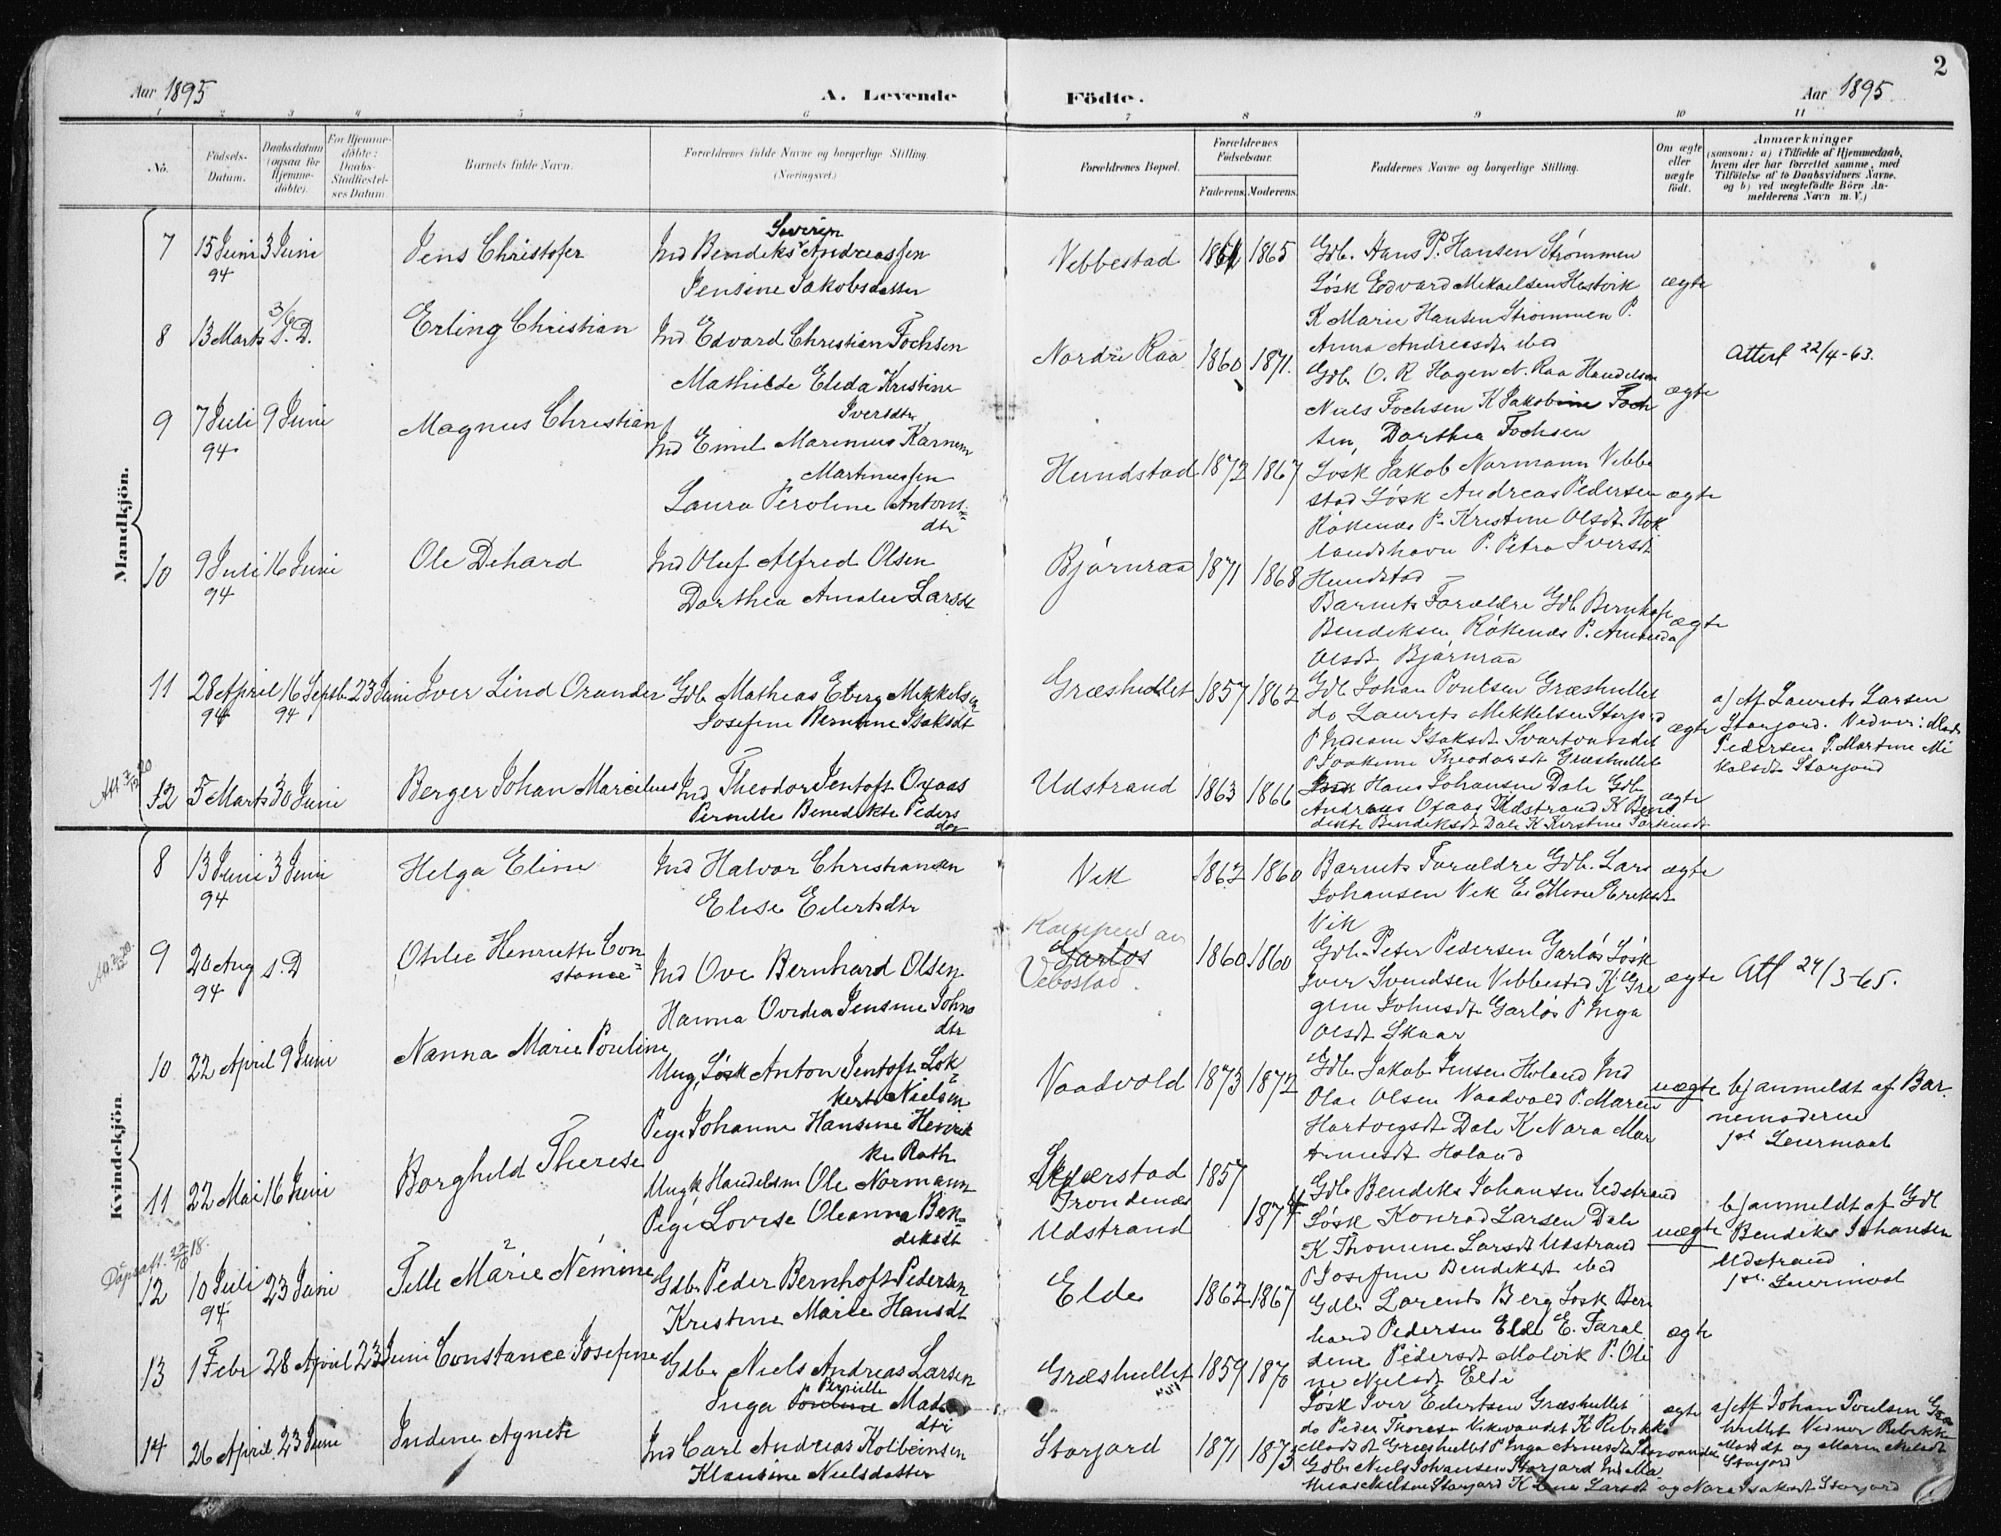 2
Aar 1895
A. Levende
Födte.
Aar 1895
1 2 3 4 5 6 7 8 9 10 11
No.
Födsels-
Datum.
Daabsdatum
(ogsaa for
Hjemme-
døbte).
For Hjemme-
døbte:
Daabs-
Stadfæstel-
ses Datum.
Barnets fulde Navn.
Forældrenes fulde Navne og borgerlige Stilling
(Næringsvei.)
Forældrenes Bopæl.
Forældrenes
Fødselsaar.
Faderens. Moderens.
Faddernes Navne og borgerlige Stilling.
Om ægte
eller
uægte
født.
Anmærkninger
(saasom: a) i Tilfælde af Hjemmedaab,
hvem der har forrettet samme, med
Tilføielse af to Daabsvidners Navne.
og b) ved uægtefødte Börn An-
melderens Navn m. V.)
Mandkjön.
7
15 Juni 94
3 Juni
Jens Christofer
Severin
Ind Bendiks Andreassen
Jensine Jakobsdatter
Vebbestad
1865
Gdb. Hans P. Hansen Strømmen
Løsk Edvard Mikaelsen Hestvik
K Marie Hansen Strømmen P.
Anna Andreasdt ibd
ægte
8
13 Marts
3/6
S. D.
Erling Christian
Ind Edvard Christian Fochsen
Mathilde Elida Kristine
Iversdtr
Nordre Raa
1860
1871.
Gdb. O. R Hagen N. Raa Handelsm
Niels Fochsen K Jakobine Foch
sen, Dorthea Fochsen
ægte
Attest 22/4-63.
9
7 Juli 94
9 Juni
Magnus Christian
Ind Emil Marinius
Martinussen
Laura Peroline Antons=
dtr
Hundstad
1872
1867
Løsk Jakob Normann Vebbe
stad Løsk Andreas Pedersen
Røkenes P. Kristine Olsdt Hok
landshavn P. Petra Iversdt
Hundstad
ægte
10
9 Juli 94
16 Juni
Ole Dehard
Ind Oluf Alfred Olsen
Dorthea Amalie Larsdt
Bjørnraa
1871
1868
Barnets Forældre Gdb Bernhoft
Bendiksen, Røkenes P. Amanda
Olsdt Bjørnraa
ægte
11
28 April 94
16 Septbr 94
23 Juni
Iver Lind Orander
Gdb Mathias Eberg Mikkelsen
Josefine Berntine Isaksdt
Græshullet
1857
1862
Gdb Johan Poulsen Græshullet
do Laurits Mikkelsen Storjord
P Isaksdt Svartvandet
P Joakime Theodorsdt Græshullet
ægte
a) Af Laurits Larsen
Storjord. Vedner: Mads
Pedersen P. Martine Mi
kalsdt Storjord
12
5 Marts
30 Juni
Berger Johan Marcilius
Ind Theodor Jentoft Oxaas
Pernille Benedikte Peders
dtr
Udstrand
1863
1866
Hans Johansen Dale Gdb
Andreas Oxaas Udstrand K Bene
dikte Bendiksdt Dale K Kirstine Torbensdt
ægte
Kvindekjön.
8
13 Juni 94
3 Juni
Helga Eline
Ind Halvor Christiansen
Elise Eilertsdtr
Vik
1862
1860
Barnets Forældre Gdb. Lars
Johansen Vik E. Mene Eriksdt
Vik
ægte
9
20 Aug 94
s. D
Othlie Henriette Con
stance=
Ind Ove Bernhard Olsen
Hanna Ovidia Jensine Johns
dtr
Garløs
Vebostad.
1860
1860
Gdb. Peter Pedersen Garløs Løsk
Iver Svendsen Vebbestad K Gre
gine Johnsdt Garløs P Inga
Olsdt Skaar
ægte
Att 24/3-65.
10
22 April
9 Juni
Nanna Marie Pouline
Ung. Løsk Anton Jentoft Lok
kert Nielsen
Pige Johanne Hansine Henrik
ke Rath
Vaadvold
1873
1872
Gdb. Jakob Jensen Holand Ind
Olai Olsen Vaadvold P. Maren
Hartvigsdt Dale K Nara Mar
Arnesdt Holand
uægte
b) anmeldt af Bar-
nemoderen
1st Leiermaal
11
22 Mai
16 Juni
Borghild Therese
Ungk Handelsm Ole Normann
Pige Lovise Oleanna Ben=
diksdt
Trondenæs
Udstrand
1857
1874
Gdb. Bendiks Johansen Udstrand
Løsk Konrad Larsen Dale
K Thomine Larsdt Udstrand
P Josefine Bendiksdt ibd
uægte
b) anmeldt af Gdb
Bendiks Johansen
Udstrand
1st Leiermaal
12
10 Juli 94
23 Juni
Tille Marie Nemine
Gdb. Peder Bernhoft Pedersen
Kristine Marie Hansdt
Elde
1862
1867
Gdb. Lorents Berg Løsk Ber
hard Pedersen Elde E. Faral
dene Pedersdt Molvik P. Oli
ne Nielsdt Elde
ægte
13
1 Febr
28 April
23 Juni
Constance Josefine
Gdb. Niels Andreas Larsen
Pernille
Inga Pouline Mads
dtr
Græshullet
1859
1870
Løsk Iver Edvartsen Græshullet
do Peder Thoresen Vikvandet K Rebekka
Madsdt Græshullet P Inga Arnesdt
ægte
a) Af Johan Poulsen Græs
hullet Vidner Rebekka
Madsdt og Maren Nielsdt
Storjord
14
26 April
23 Juni
Indine Agnete
Ind Carl Andreas Kolbeinsen
Klausine Nielsdatter
Storjord
1871
1873
Gdb. Niels Johansen Storjord Ind Ma
thias Nielsen Storjord K Lene Larsdt og Nara Isaksdt Storjord